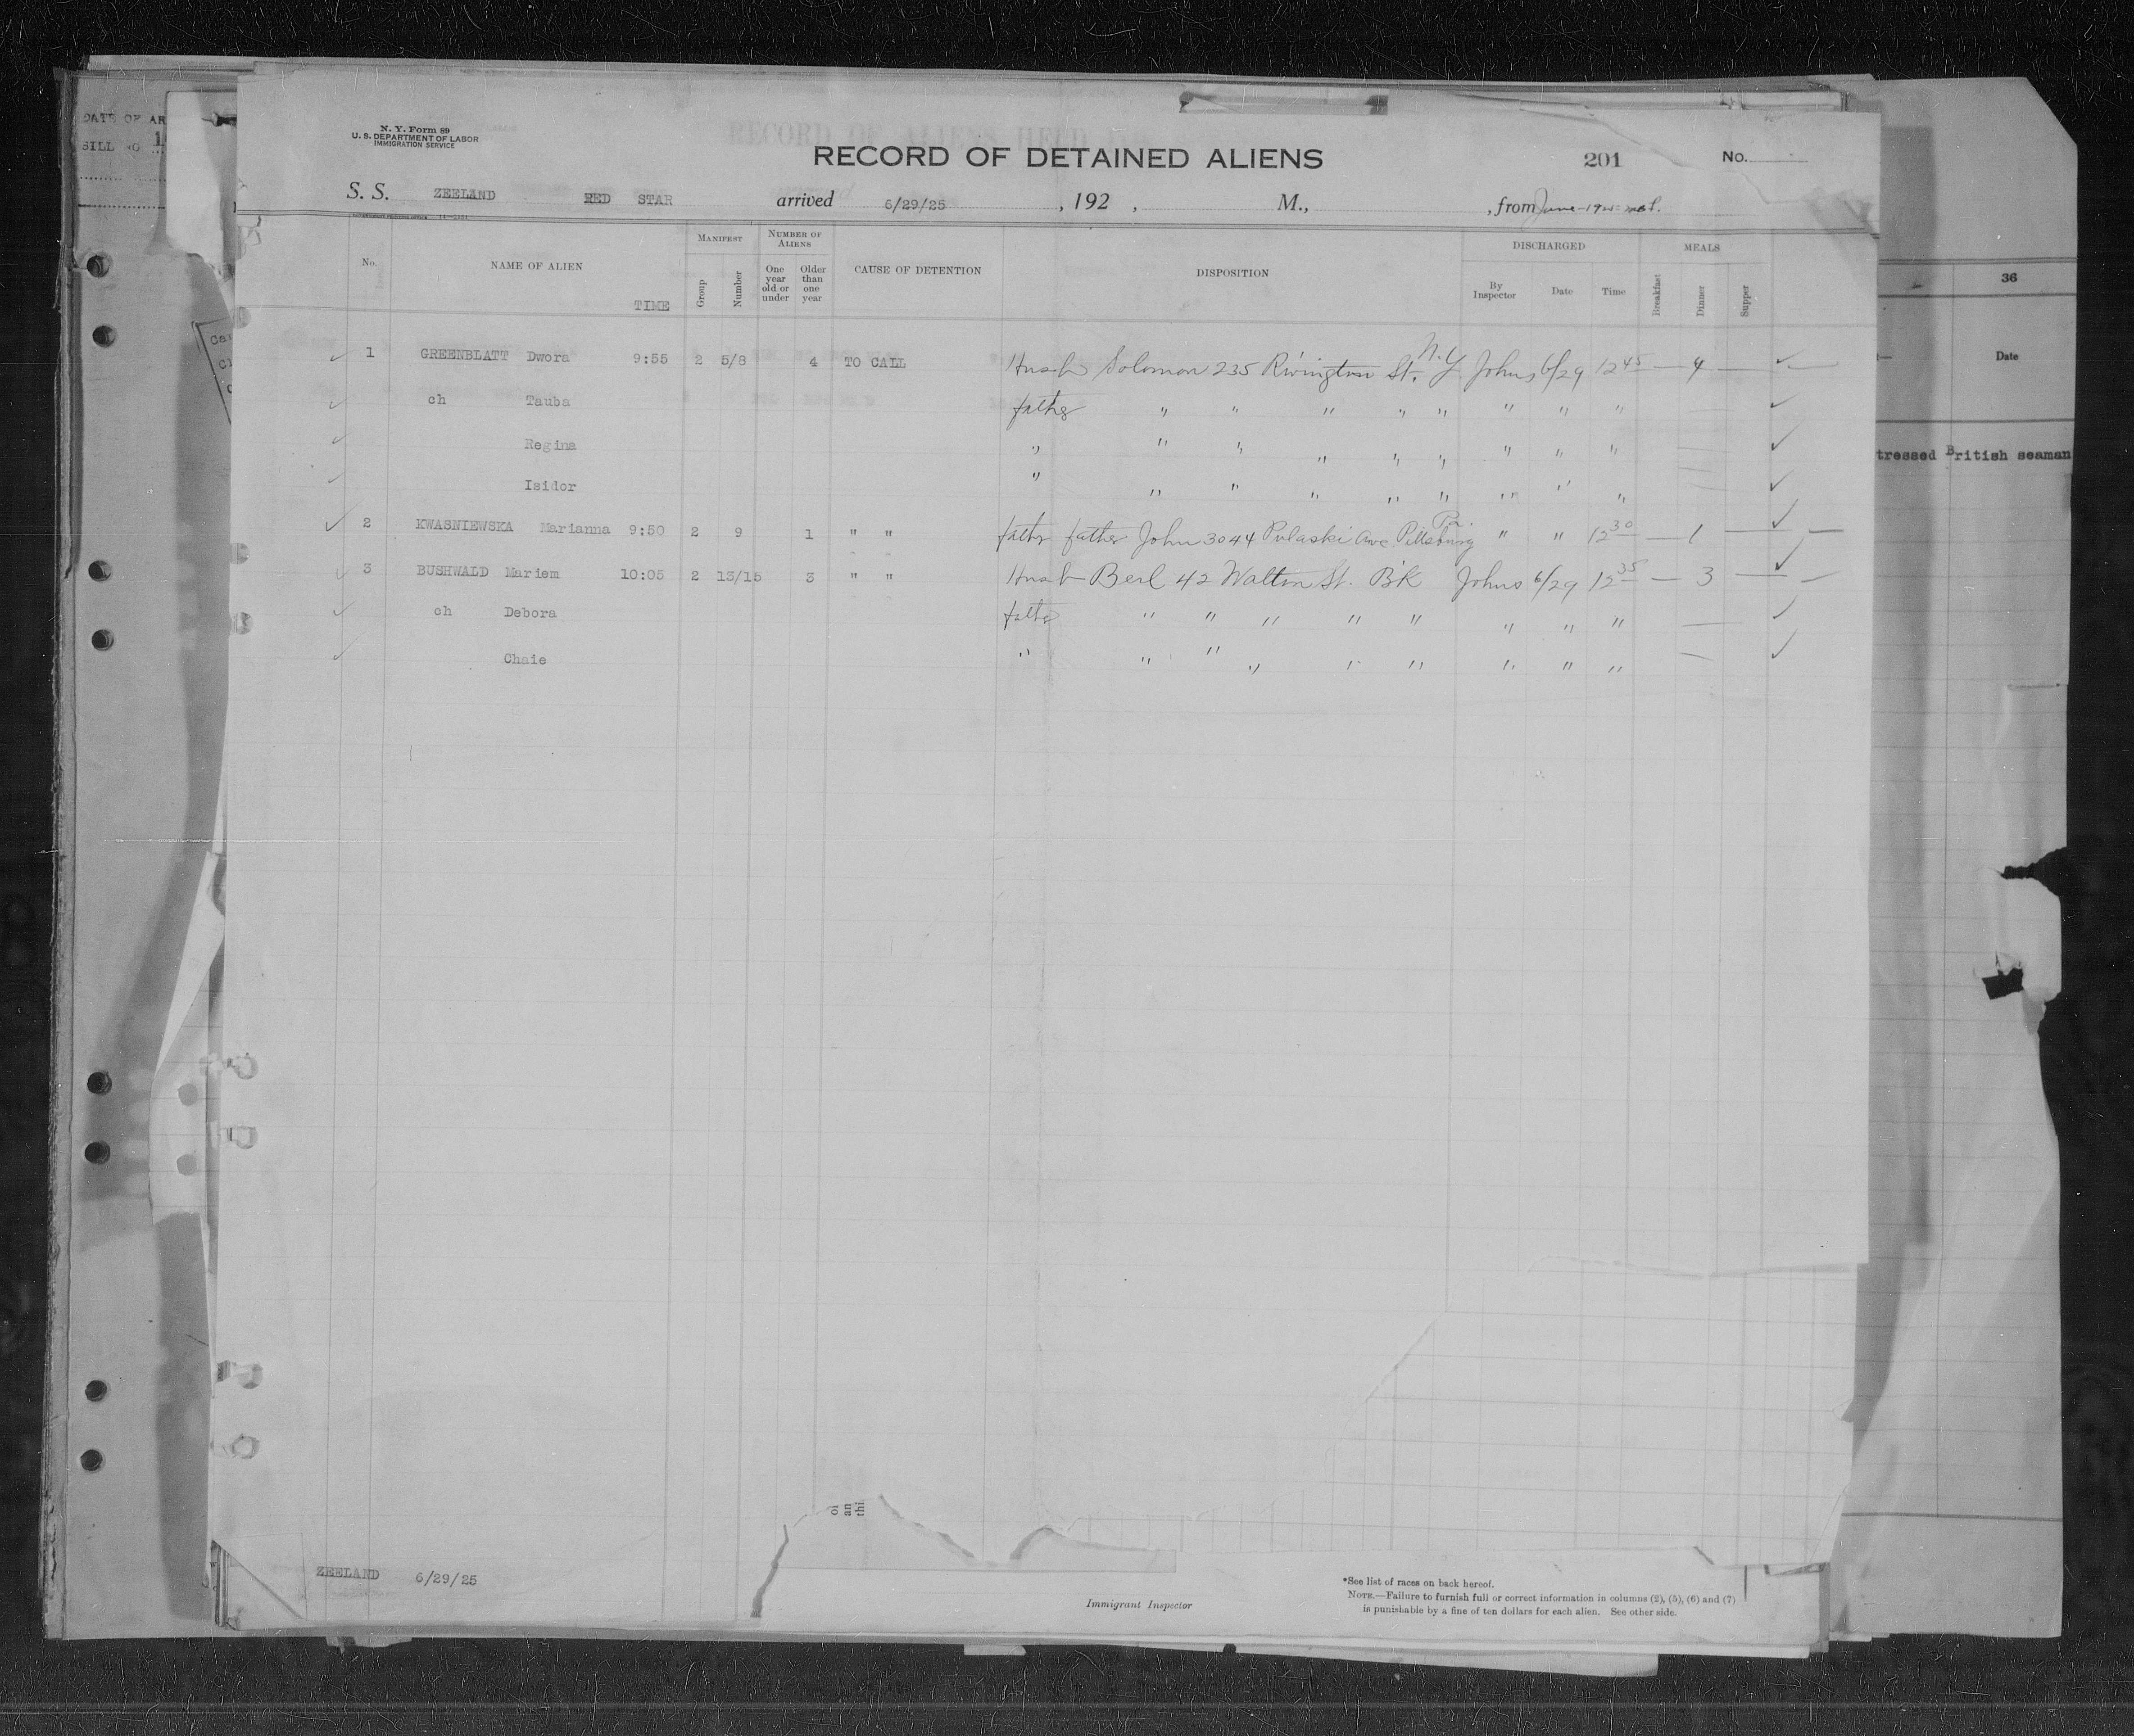 DATE OF AR
BILL NO 1
N. Y. Form 89
U. S. DEPARTMENT OF LABOR
IMMIGRATION SERVICE
RECORD OF DETAINED ALIENS
201
No.
S. S. ZEELAND RED STAR arrived 6/29/25 , 192 , M., , from
No. NAME OF ALIEN TIME MANIFEST Group Number NUMBER OF ALIENS One year old or under Older than one year CAUSE OF DETENTION DISPOSITION DISCHARGED By Inspector Date Time MEALS Breakfast Dinner Supper
36
Date
1 GREENBLATT Dwora 9:55 2 5/8 4 TO CALL Husb Solomon 235 Rivington St. N.Y Johns 6/29 12 45 — 4 —
ch Tauba father " " " " " " " "
Regina " " " " " " " " "
Isidor " " " " " " " " "
tressed British seaman
2 KWASNIEWSKA Marianna 9:50 2 9 1 " " father father John 3044 Pulaski Ave Pittsburg Pa. " " 12 30 — 1 —
3 BUSHWALD Mariem 10:05 2 13/15 3 " " Husb Berl 42 Walton St. B'K Johns 6/29 12 35 — 3 —
ch Debora father " " " " " " " " —
Chaie " " " " " " " " " —
ZEELAND 6/29/25
Immigrant Inspector
*See list of races on back hereof.
NOTE.—Failure to furnish full or correct information in columns (2), (5), (6) and (7)
is punishable by a fine of ten dollars for each alien. See other side.